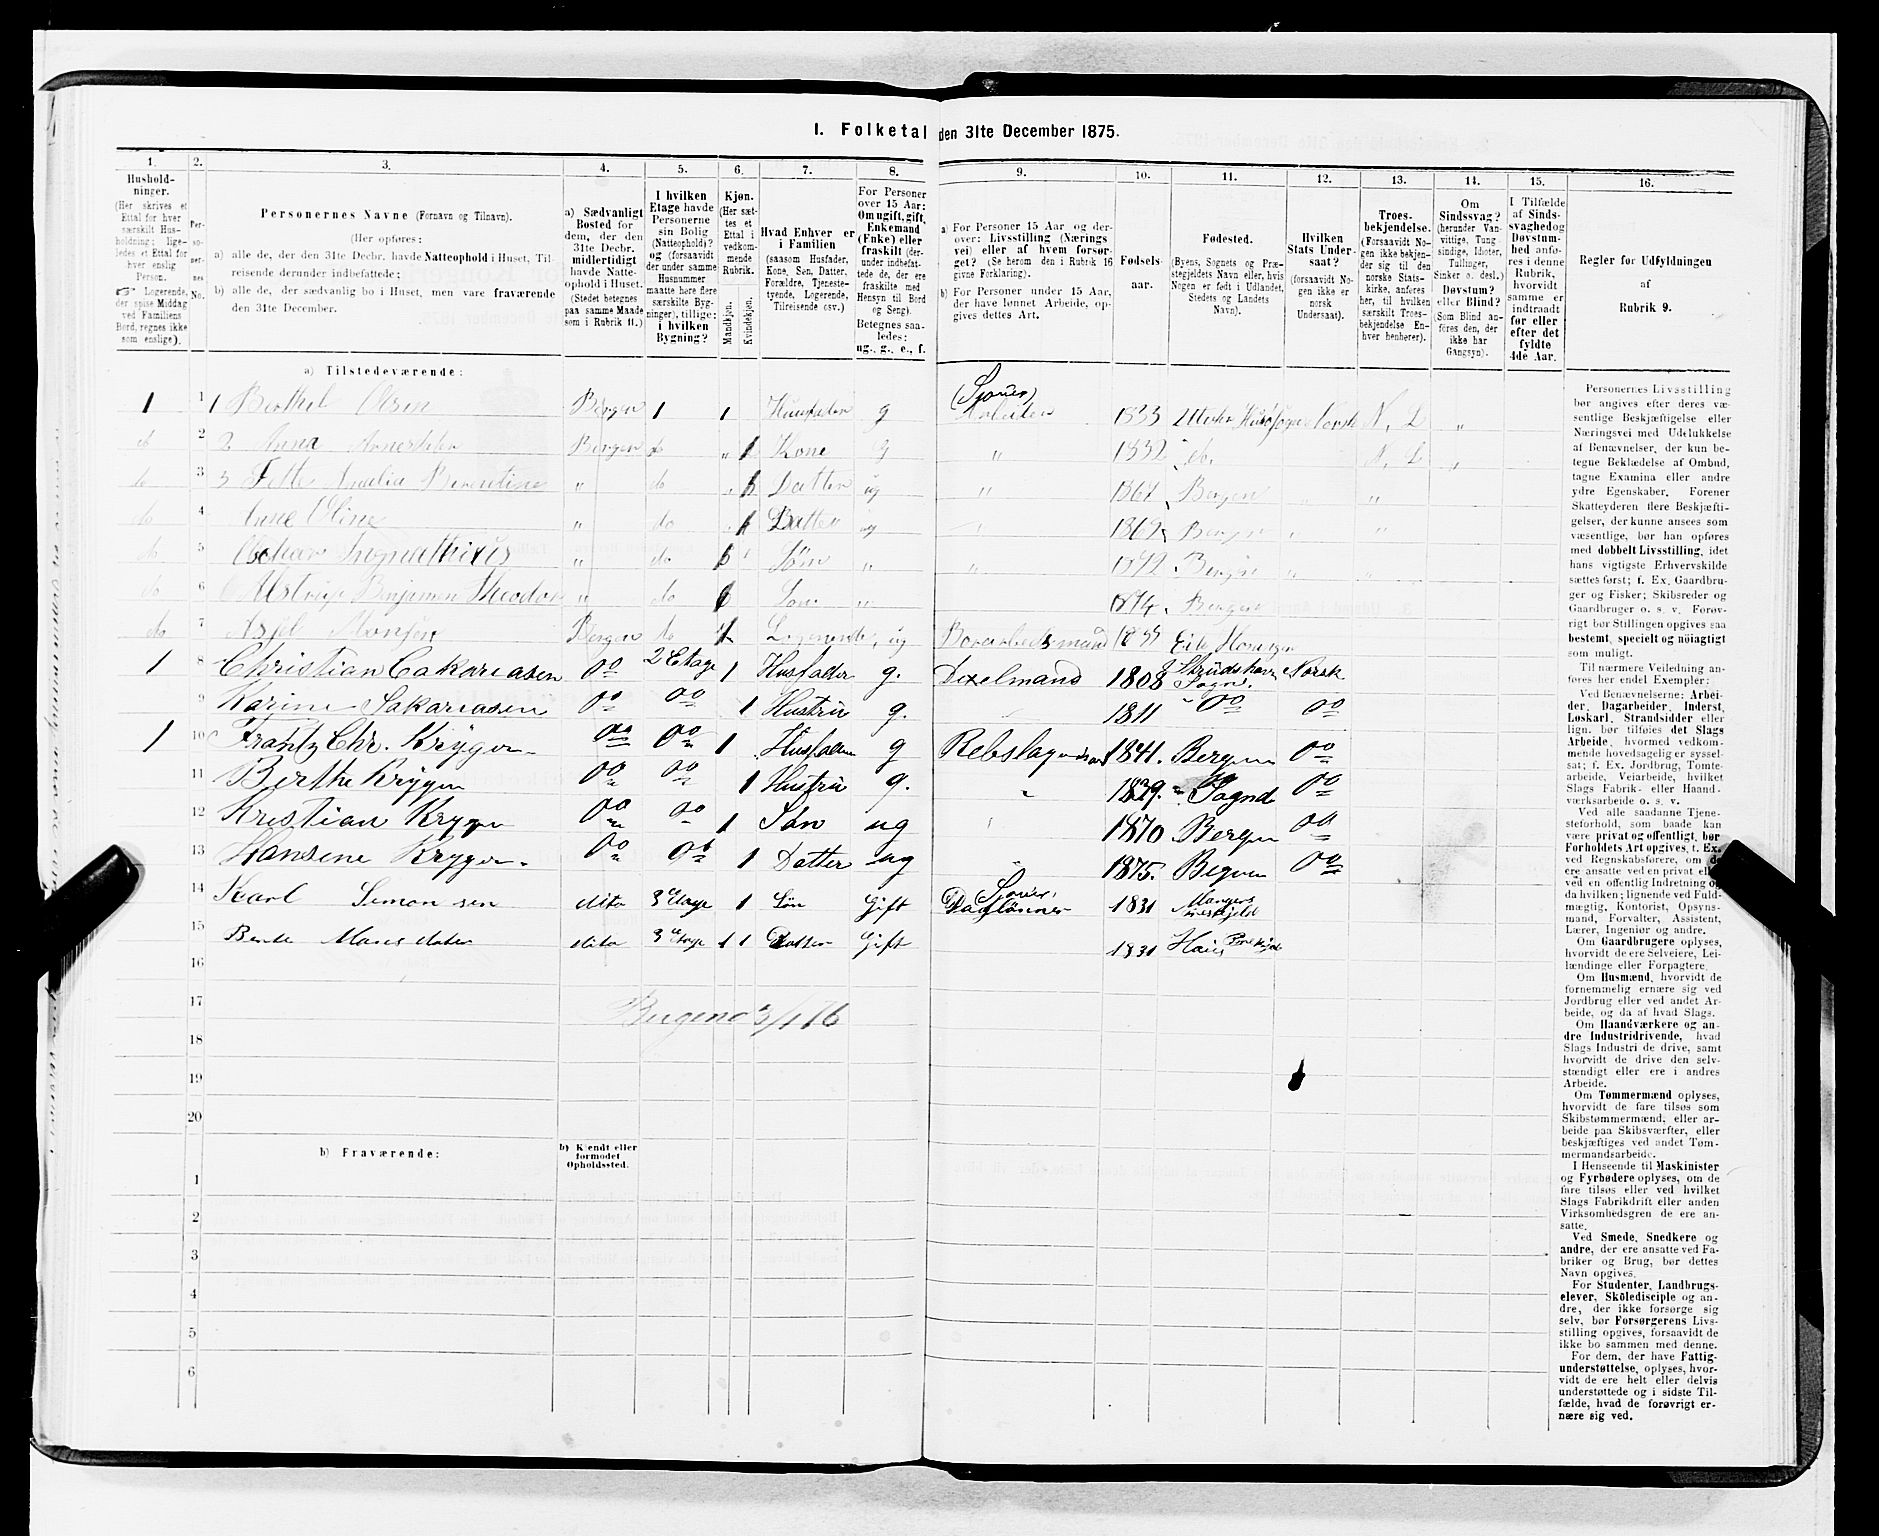 I. Folketal den 31te December 1875.
1. 2. 3. 4. 5. 6. 7. 8. 9. 10. 11. 12. 13. 14. 15. 16.
Hushold-
ninger.
(Her skrives et
Ettal for hver
særskilt Hus-
holdning; lige-
ledes et Ettal for
hver enslig
Person.
Logerende,
der spise Middag
ved Familiens
Bord, regnes ikke
som enslige).
Per-
so-
ner-
nes
No.
Personernes Navne (Fornavn og Tilnavn).
(Her opføres:
a) alle de, der den 31te Decbr. havde Natteophold i Huset, Til-
reisende derunder indbefattede;
b) alle de, der sædvanlig bo i Huset, men vare fraværende
den 31te December.
a) Sædvanligt
Bosted for
dem, der den
31te Decbr.
midlertidigt
havde Natte-
ophold i Huset.
(Stedet betegnes
paa samme Maade
som i Rubrik 11.)
I hvilken
Etage havde
Personerne
sin Bolig
(Natteophold)?
og (forsaavidt
der under samme
Husnummer
maatte høre flere
særskilte Byg-
ninger), tillige:
i hvilken
Bygning?
Kjøn.
(Her sæt-
tes et
Ettal i
vedkom-
mende
Rubrik.
Mandkjøn.
Kvindekjøn.
Hvad Enhver er
i Familien
(saasom Husfader,
Kone, Søn, Datter,
Forældre, Tjeneste-
tyende, Logerende,
Tilreisende osv.)
For Personer
over 15 Aar:
Om ugift, gift,
Enkemand
(Enke) eller
fraskilt (der-
under indbefat-
tede de, der ere
fraskilte med
Hensyn til Bord
og Seng).
Betegnes saa-
ledes:
ug., g., e., f.
a) For Personer 15 Aar og der-
over: Livsstilling (Nærings
vei) eller af hvem forsør-
get? (Se herom den i Rubrik 16
givne Forklaring).
b) For Personer under 15 Aar,
der have lønnet Arbeide, op-
gives dettes Art.
Fødsels-
aar.
Fødested.
(Byens, Sognets og Præ-
stegjeldets Navn eller, hvis
Nogen er født i Udlandet,
Stedets og Landets
Navn).
Hvilken
Stats Under-
saat?
(forsaavidt No-
gen ikke er
norsk
Undersaat).
Troes-
bekjendelse.
(Forsaavidt No-
gen ikke bekjen-
der sig til den
norske Stats-
kirke, anføres
her, til hvilken
særskilt Troes-
bekjendelse En-
hver henhører).
Om
Sindssvag?
(herunder Van-
vittige, Tung-
sindige, Idioter,
Tullinger,
Sinker o. desl.)
Døvstum?
eller Blind?
(Som Blind an-
føres den, der
ikke har
Gangsyn).
I Tilfælde
af Sinds-
svaghed og
Døvstum-
hed anfø-
res i denne
Rubrik,
hvorvidt
samme er
indtraadt
før eller
efter det
fyldte
4de Aar.
Regler for Udfyldningen
af
Rubrik 9.
a) Tilstedeværende:
1 1 1 Berthel Olsen Bergen 1 1 Husfader g (Sjouer) Arbeider 1833 Norsk N. L "
do 2 2 Anna Bergen do " 1 Kone g " 1832 do. N. L "
do 3 3 Jette Amalia Berentine " do " 1 Datter ug " 1867 Bergen " "
do 4 Anne Oline " do " 1 Datter ug " 1869 Bergen " "
do 5 Oschar " do 1 " Søn " " 1872 Bergen " "
do 6 Benjamin Theodor " do 1 Søn " 1874 Bergen
do 7 Monsen Bergen do 1 Logerende, ug
1 8 Christian Cakariasen Do 2 Etage 1 Husfader g. Dixelmand 1808 Sogn. Norsk
9 Karine Sakariasen Do Do 1 Hustru g. 1811 " Do Do
1 10 Frantz Chr. Krÿger Do Do 1 Husfader g 1841. Bergen Do
11 Berthe Krÿger Do Do 1 Hustru g. " 1829. " Sognd Do
12 Kristian Kryger Do Do 1 Søn ug " 1870 Bergen Do
13 Hansene Kryger Do Do 1 Datter ug " 1875. Bergen Do
14 Karl Simonsen dito 3 Etage 1 Søn Gift Sjouer, Daglønner 1831 Mangers
15 dito 3 Etage 1 1 Datter Gift 1831 Haus
16
17
Bergen 3/1 76
18
19
20
b) Fraværende:
b) Kjendt eller
formodet
Opholdssted.
1
2
3
4
5
6
Personernes Livsstilling
bør angives efter deres væ-
sentlige Beskjæftigelse eller
Næringsvei med Udelukkelse
af Benævnelser, der kun be-
tegne Beklædelse af Ombud,
tagne Examina eller andre
ydre Egenskaber. Forener
Skatteyderen flere Beskjæfti-
gelser, der kunne ansees som
væsentlige, bør han opføres
med dobbelt Livsstilling, idet
hans vigtigste Erhvervskilde
sættes først; f. Ex. Gaardbru-
ger og Fisker; Skibsreder og
Gaardbruger o. s. v. Forøv-
rigt bør Stillingen opgives saa
bestemt, specielt og nöiagtigt
som muligt.
Til nærmere Veiledning an-
føres her endel Exempler:
Ved Benævnelserne: Arbei-
der, Dagarbeider, Inderst,
Løskarl, Strandsidder eller
lign. bør tilføies det Slags
Arbeide, hvormed vedkom-
mende hovedsagelig er syssel-
sat; f. Ex. Jordbrug, Tomte-
arbeide, Veiarbeide, hvilket
Slags Fabrik- eller Haand-
værksarbeide o. s. v.
Ved alle saadanne Tjene-
steforhold, som baade kan
være privat og offentligt, bør
Forholdets Art opgives, f. Ex.
ved Regnskabsførere, om de
ere ansatte ved en privat eller
ved en offentlig Indretning og
da hvilken; lignende ved Fuld-
mægtig, Kontorist, Opsyns-
mand, Forvalter, Assistent,
Lærer, Ingeniør og andre.
Om Gaardbrugere oplyses,
hvorvidt de ere Selveiere, Lei-
lændinge eller Forpagtere.
Om Husmænd, hvorvidt de
fornemmelig ernære sig ved
Jordbrug eller ved andet Ar-
beide, og da af hvad Slags.
Om Haandværkere og an-
dre Industridrivende, hvad
Slags Industri de drive, samt
hvorvidt de drive den selv-
stændigt eller ere i andres
Arbeide.
Om Tømmermænd oplyses,
hvorvidt de fare tilsøs som
Skibstømmermænd, eller ar-
beide paa Skibsværfter, eller
beskjæftiges ved andet Tøm-
mermandsarbeide.
I Henseende til Maskinister
og Fyrbødere oplyses, om de
fare tilsøs eller ved hvilket
Slags Fabrikdrift eller anden
Virksomhedsgren de ere an-
satte.
Ved Smede, Snedkere og
andre, der ere ansatte ved Fa-
briker og Brug, bør dettes
Navn opgives.
For Studenter, Landbrugs-
elever, Skoledisciple og an-
dre, der ikke forsørge sig
selv, bør Forsørgerens Livs-
stilling opgives, forsaavidt de
ikke bo sammen med denne.
For dem, der have Fattig-
understøttelse, oplyses, hvor-
vidt de ere helt eller delvis
understøttede og i sidste Til-
fælde, hvad de forøvrigt er-
nære sig ved.